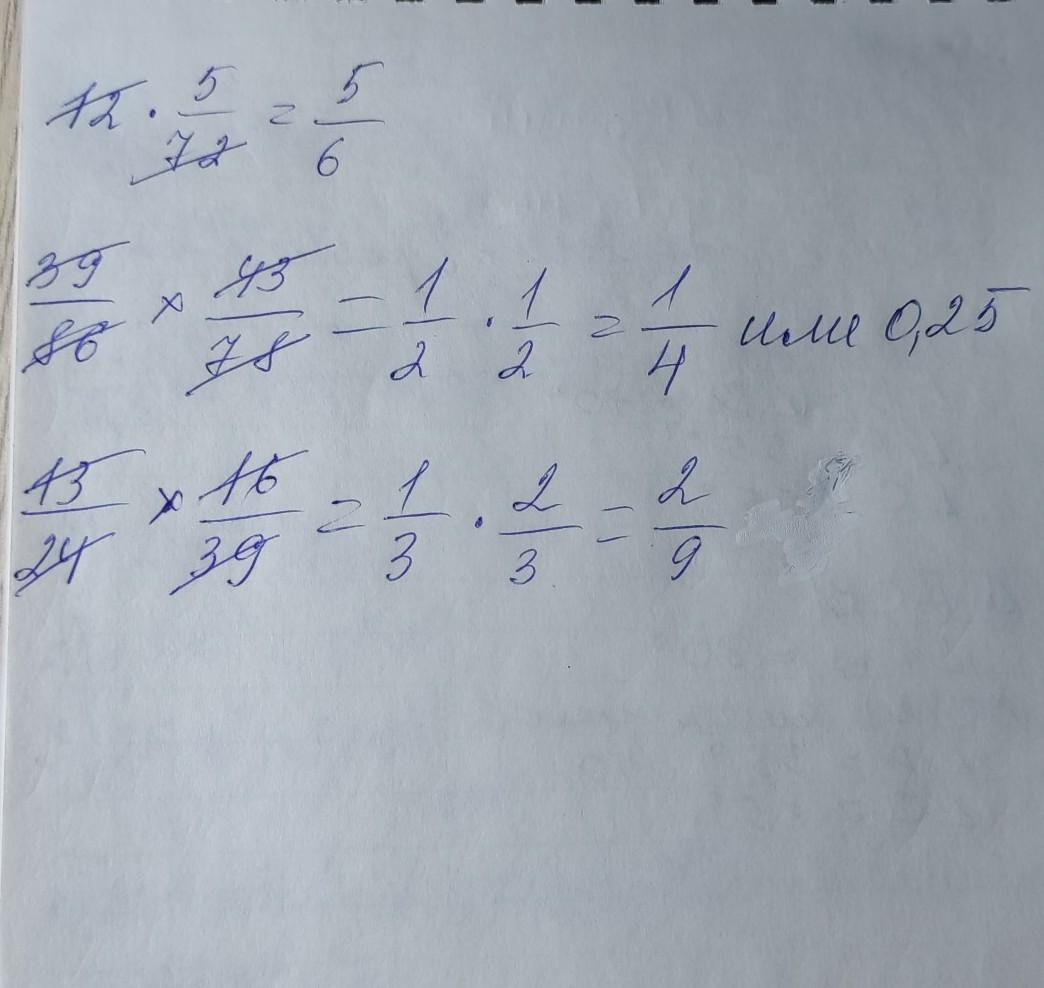 12 · 5/72 = 5/6
39/86 × 43/78 = 1/2 · 1/2 = 1/4 или 0,25
13/24 × 16/39 = 1/3 · 2/3 = 2/9